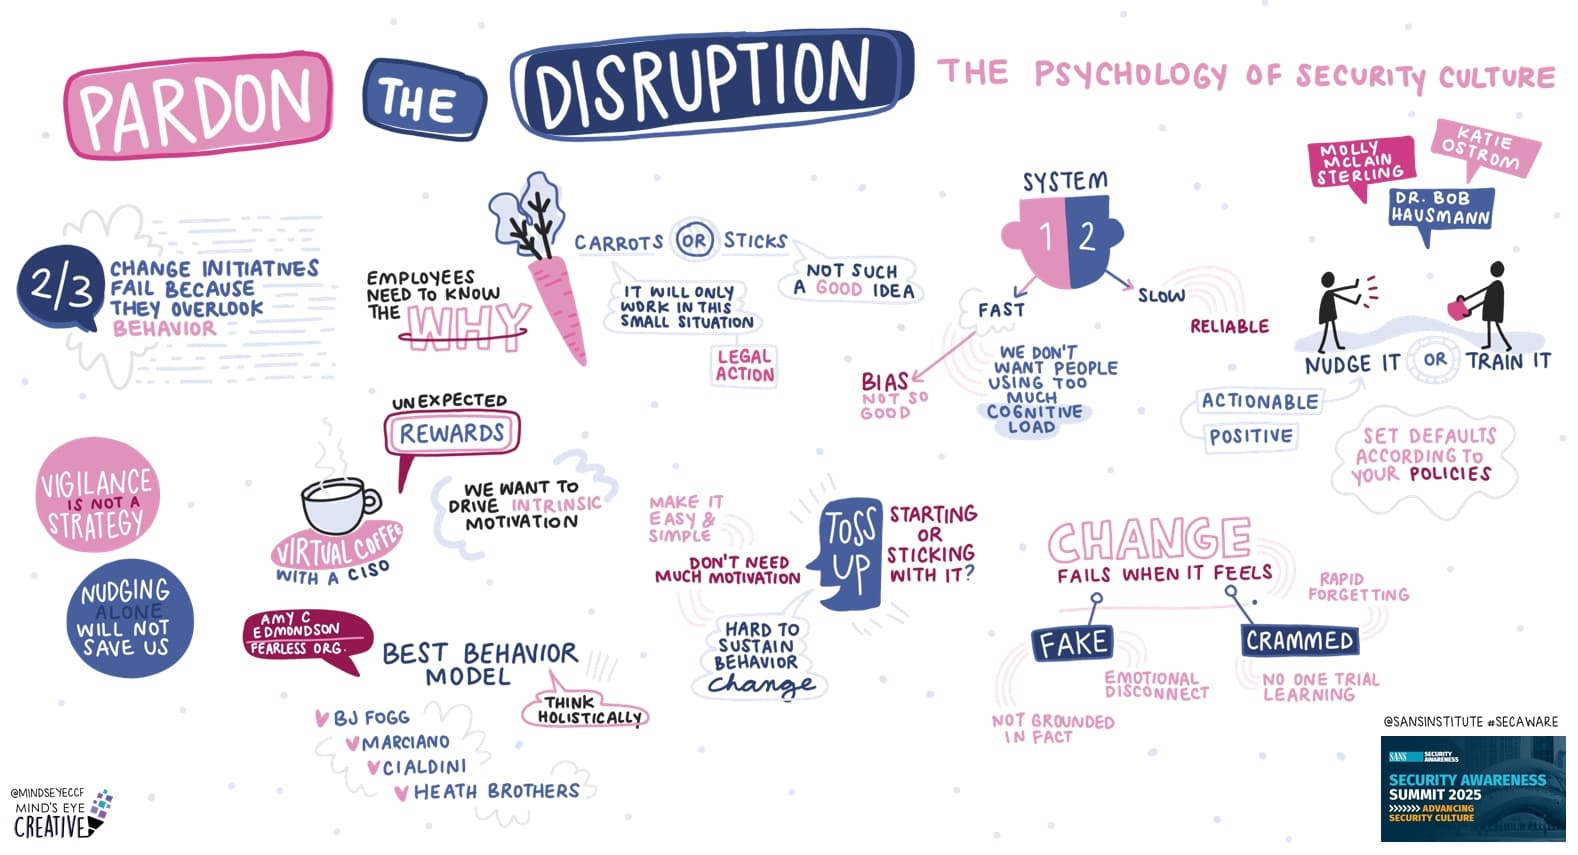 PARDON
THE
DISRUPTION
THE PSYCHOLOGY OF SECURITY CULTURE
MOLLY
MCLAIN
STERLING
KATIE
OSTROM
DR. BOB
HAUSMANN
2/3
CHANGE INITIATIVES
FAIL BECAUSE
THEY OVERLOOK
BEHAVIOR
EMPLOYEES
NEED TO KNOW
THE WHY
CARROTS OR STICKS
IT WILL ONLY
WORK IN THIS
SMALL SITUATION
LEGAL
ACTION
NOT SUCH
A GOOD IDEA
SYSTEM
1 2
FAST
SLOW
RELIABLE
BIAS
NOT SO
GOOD
WE DON'T
WANT PEOPLE
USING TOO
MUCH
COGNITIVE
LOAD
NUDGE IT OR TRAIN IT
ACTIONABLE
POSITIVE
SET DEFAULTS
ACCORDING TO
YOUR POLICIES
VIGILANCE
IS NOT A
STRATEGY
NUDGING
ALONE
WILL NOT
SAVE US
UNEXPECTED
REWARDS
VIRTUAL COFFEE
WITH A CISO
WE WANT TO
DRIVE INTRINSIC
MOTIVATION
MAKE IT
EASY &
SIMPLE
DON'T NEED
MUCH MOTIVATION
TOSS
UP
STARTING
OR
STICKING
WITH IT?
HARD TO
SUSTAIN
BEHAVIOR
change
CHANGE
FAILS WHEN IT FEELS
FAKE
EMOTIONAL
DISCONNECT
NOT GROUNDED
IN FACT
CRAMMED
RAPID
FORGETTING
NO ONE TRIAL
LEARNING
AMY C
EDMONDSON
FEARLESS ORG.
BEST BEHAVIOR
MODEL
THINK
HOLISTICALLY
BJ FOGG
MARCIANO
CIALDINI
HEATH BROTHERS
@MINDSEYECCF
MIND'S EYE
CREATIVE
@SANSINSTITUTE #SECAWARE
SANS SECURITY
AWARENESS
SECURITY AWARENESS
SUMMIT 2025
>>>>>>> ADVANCING
SECURITY CULTURE